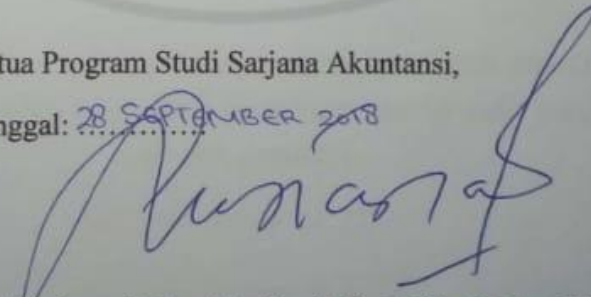 tua Program Studi Sarjana Akuntansi,
nggal: 28 SEPTEMBER 2018